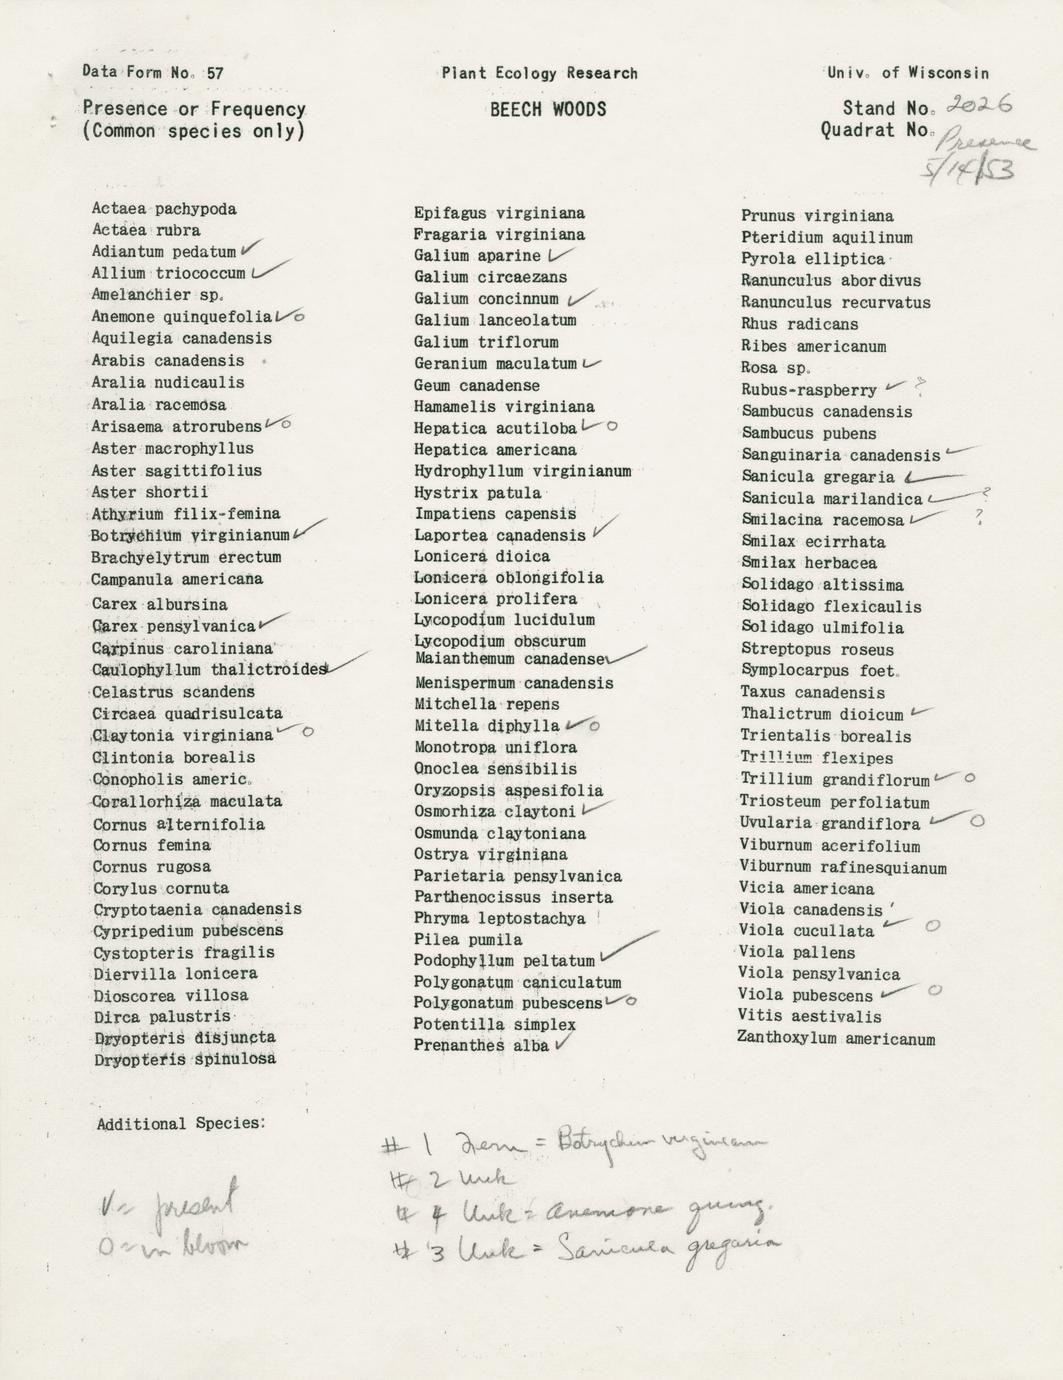 Data Form No. 57
Plant Ecology Research
Univ. of Wisconsin
Presence or Frequency
(Common species only)
BEECH WOODS
Stand No. 2026
Quadrat No. Presence
5/14/53
Actaea pachypoda
Actaea rubra
Adiantum pedatum ✓
Allium triococcum ✓
Amelanchier sp.
Anemone quinquefolia ✓ o
Aquilegia canadensis
Arabis canadensis
Aralia nudicaulis
Aralia racemosa
Arisaema atrorubens ✓ o
Aster macrophyllus
Aster sagittifolius
Aster shortii
Athyrium filix-femina
Botrychium virginianum ✓
Brachyelytrum erectum
Campanula americana
Carex albursina
Carex pensylvanica ✓
Carpinus caroliniana
Caulophyllum thalictroides ✓
Celastrus scandens
Circaea quadrisulcata
Claytonia virginiana ✓ o
Clintonia borealis
Conopholis americ.
Corallorhiza maculata
Cornus alternifolia
Cornus femina
Cornus rugosa
Corylus cornuta
Cryptotaenia canadensis
Cypripedium pubescens
Cystopteris fragilis
Diervilla lonicera
Dioscorea villosa
Dirca palustris
Dryopteris disjuncta
Dryopteris spinulosa
Epifagus virginiana
Fragaria virginiana
Galium aparine ✓
Galium circaezans
Galium concinnum ✓
Galium lanceolatum
Galium triflorum
Geranium maculatum ✓
Geum canadense
Hamamelis virginiana
Hepatica acutiloba ✓ o
Hepatica americana
Hydrophyllum virginianum
Hystrix patula
Impatiens capensis
Laportea canadensis ✓
Lonicera dioica
Lonicera oblongifolia
Lonicera prolifera
Lycopodium lucidulum
Lycopodium obscurum
Maianthemum canadense ✓
Menispermum canadensis
Mitchella repens
Mitella diphylla ✓ o
Monotropa uniflora
Onoclea sensibilis
Oryzopsis aspesifolia
Osmorhiza claytoni ✓
Osmunda claytoniana
Ostrya virginiana
Parietaria pensylvanica
Parthenocissus inserta
Phryma leptostachya
Pilea pumila
Podophyllum peltatum ✓
Polygonatum caniculatum
Polygonatum pubescens ✓ o
Potentilla simplex
Prenanthes alba ✓
Prunus virginiana
Pteridium aquilinum
Pyrola elliptica
Ranunculus abordivus
Ranunculus recurvatus
Rhus radicans
Ribes americanum
Rosa sp.
Rubus-raspberry ✓ ?
Sambucus canadensis
Sambucus pubens
Sanguinaria canadensis ✓
Sanicula gregaria ✓
Sanicula marilandica ✓ ?
Smilacina racemosa ✓ ?
Smilax ecirrhata
Smilax herbacea
Solidago altissima
Solidago flexicaulis
Solidago ulmifolia
Streptopus roseus
Symplocarpus foet.
Taxus canadensis
Thalictrum dioicum ✓
Trientalis borealis
Trillium flexipes
Trillium grandiflorum ✓ o
Triosteum perfoliatum
Uvularia grandiflora ✓ o
Viburnum acerifolium
Viburnum rafinesquianum
Vicia americana
Viola canadensis
Viola cucullata ✓ o
Viola pallens
Viola pensylvanica
Viola pubescens ✓ o
Vitis aestivalis
Zanthoxylum americanum
Additional Species:
# 1 Fern = Botrychium virginianum
# 2 Unk
# 4 Unk = Anemone quinq.
# 3 Unk = Sanicula gregaria
V = present
O = in bloom